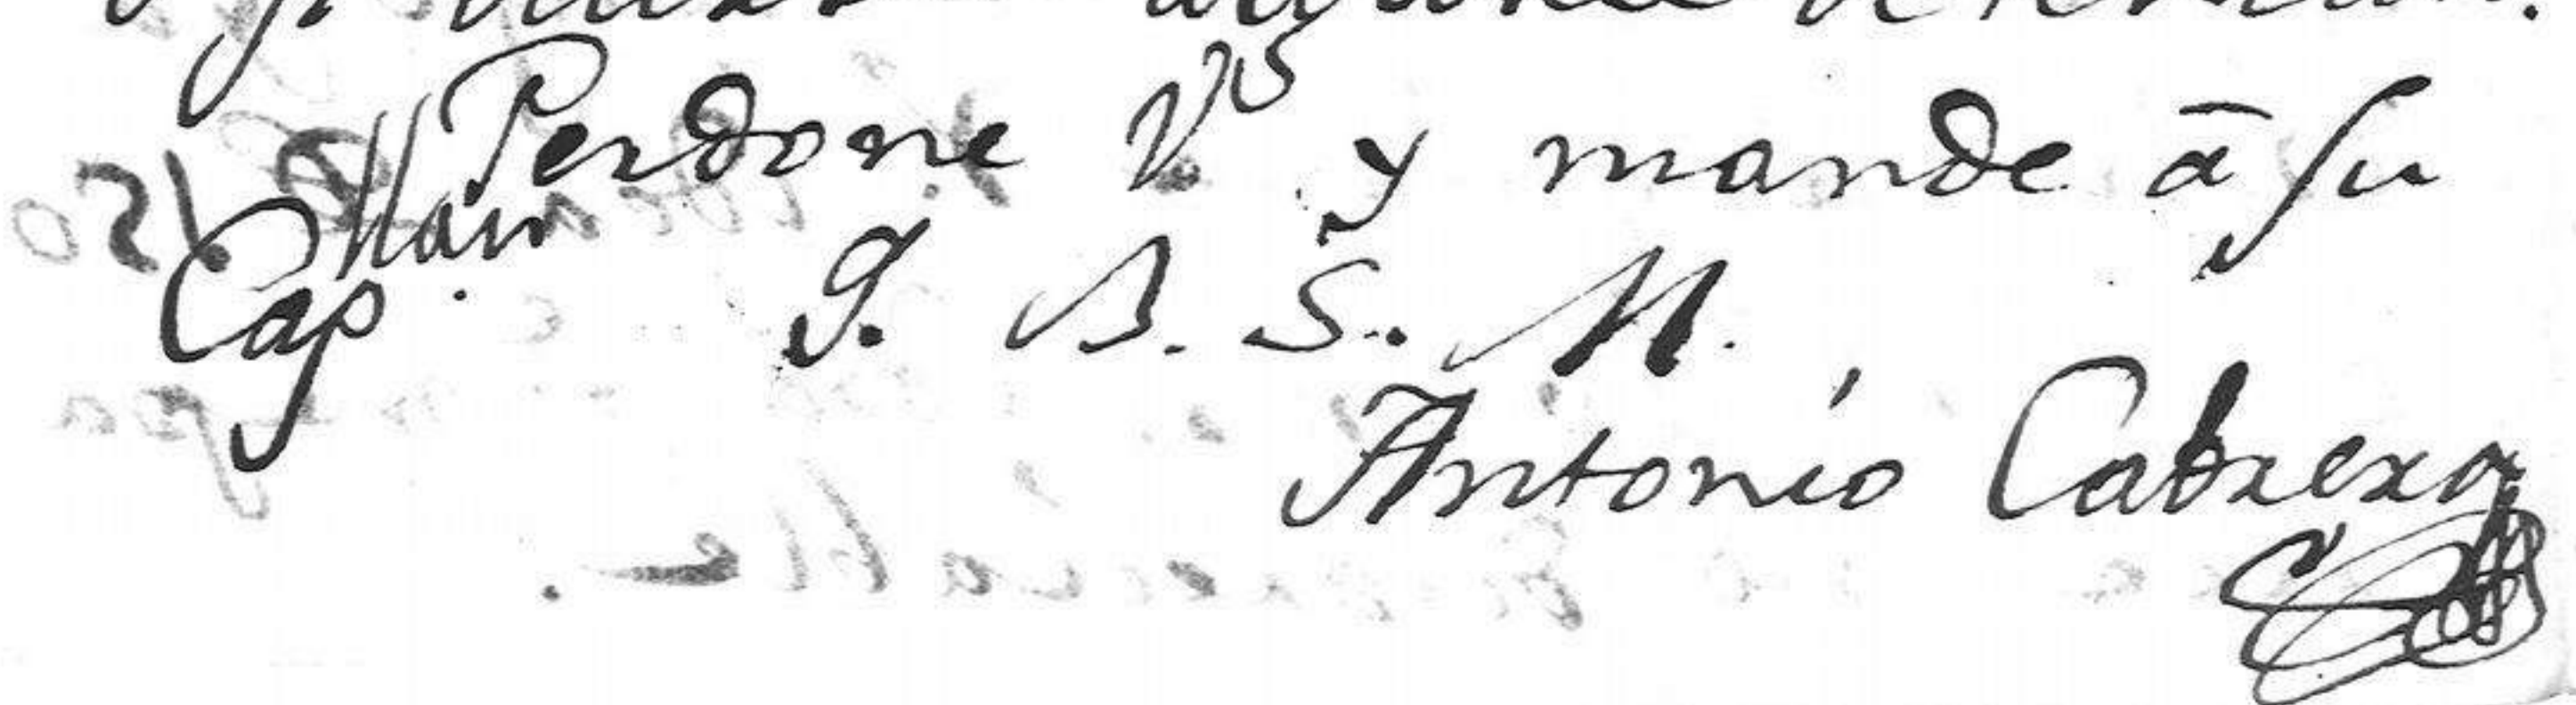 Perdone VS y mande ā su
Capllan. Q. B. S. M.
Antonio Cabrera